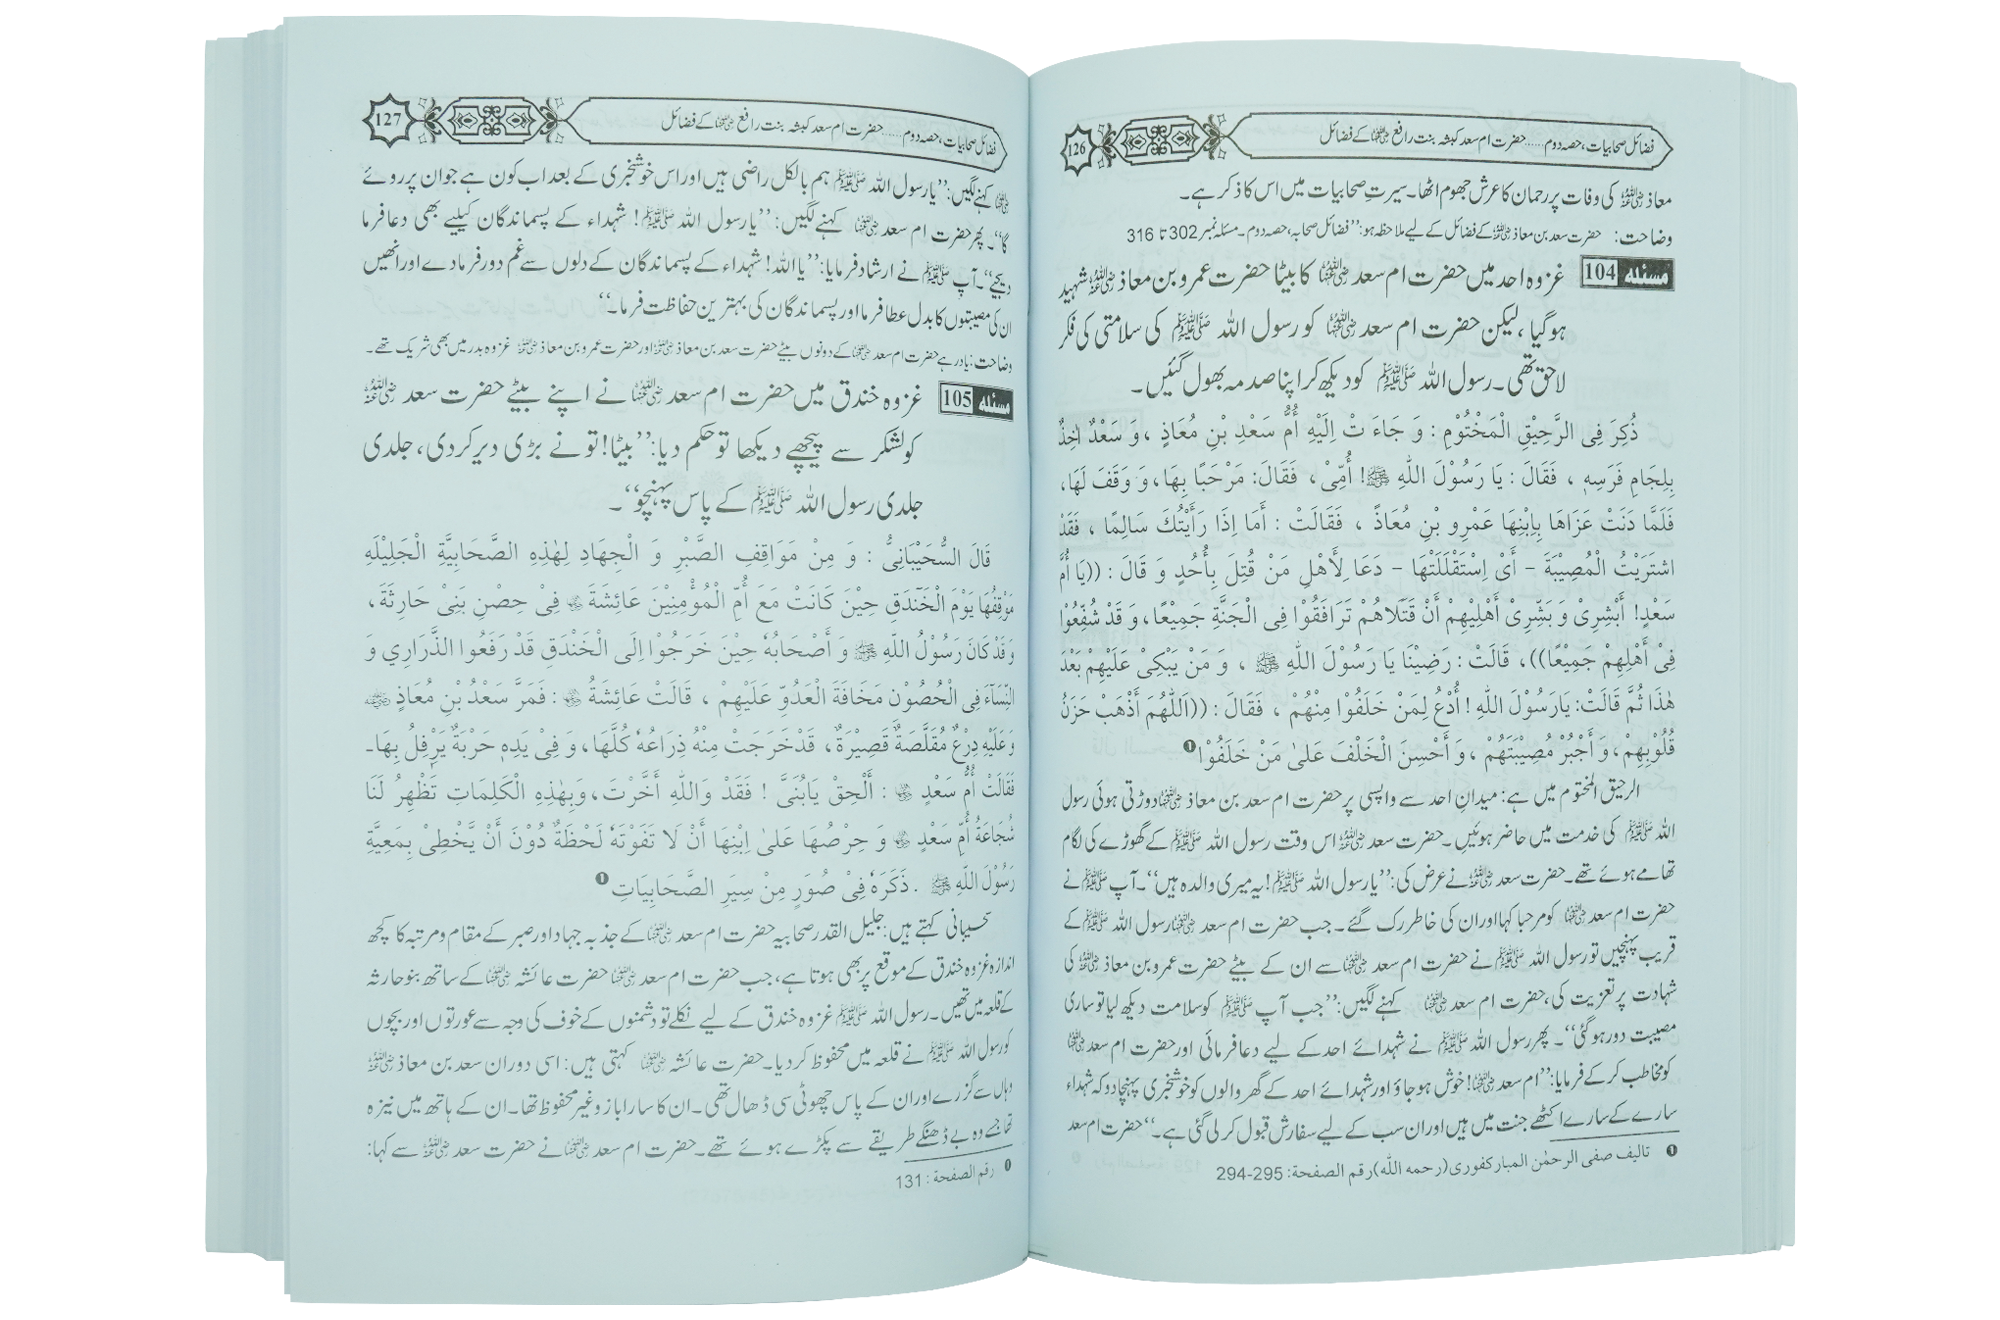 فضائل صحابیات، حصہ دوم ...... حضرت ام سعد کبشہ بنت رافع رضی اللہ عنہا کے فضائل
126
معاذ رضی اللہ عنہ کی وفات پر رحمان کا عرش جھوم اٹھا۔ سیرتِ صحابیات میں اس کا ذکر ہے۔
وضاحت: حضرت سعد بن معاذ رضی اللہ عنہ کے فضائل کے لیے ملاحظہ ہو: ’’فضائل صحابہ، حصہ دوم۔ مسئلہ نمبر 302 تا 316
مسئله 104 غزوہ احد میں حضرت ام سعد رضی اللہ عنہا کا بیٹا حضرت عمرو بن معاذ رضی اللہ عنہ شہید
ہوگیا، لیکن حضرت ام سعد رضی اللہ عنہا کو رسول اللہ ﷺ کی سلامتی کی فکر
لاحق تھی۔ رسول اللہ ﷺ کو دیکھ کر اپنا صدمہ بھول گئیں۔
ذُكِرَ فِى الرَّحِيْقِ الْمَخْتُوْمِ : وَ جَاءَ تْ اِلَيْهِ أُمُّ سَعْدِ بْنِ مُعَاذٍ ، وَ سَعْدٌ اٰخِذٌ
بِلِجَامِ فَرَسِهٖ ، فَقَالَ : يَا رَسُوْلَ اللّٰهِ ﷺ! أُمِّىْ، فَقَالَ: مَرْحَبًا بِهَا، وَ وَقَفَ لَهَا،
فَلَمَّا دَنَتْ عَزَاهَا بِاِبْنِهَا عَمْرِو بْنِ مُعَاذٍ ، فَقَالَتْ : أَمَا إِذَا رَأَيْتُكَ سَالِمًا ، فَقَدْ
اشْتَرَيْتُ الْمُصِيْبَةَ - أَىْ اِسْتَقْلَلَتْهَا - دَعَا لِأَهْلِ مَنْ قُتِلَ بِأُحُدٍ وَ قَالَ : ((يَا أُمَّ
سَعْدٍ! أَبْشِرِىْ وَ بَشِّرِىْ أَهْلِيْهِمْ أَنْ قَتْلَاهُمْ تَرَافَقُوْا فِى الْجَنَّةِ جَمِيْعًا، وَ قَدْ شُفِّعُوْا
فِىْ أَهْلِهِمْ جَمِيْعًا))، قَالَتْ : رَضِيْنَا يَا رَسُوْلَ اللّٰهِ ﷺ ، وَ مَنْ يَبْكِىْ عَلَيْهِمْ بَعْدَ
هٰذَا ثُمَّ قَالَتْ: يَارَسُوْلَ اللّٰهِ ! أُدْعُ لِمَنْ خَلَفُوْا مِنْهُمْ ، فَقَالَ : ((اَللّٰهُمَّ أَذْهِبْ حَزَنُ
قُلُوْبِهِمْ، وَ أَجْبُرْ مُصِيْبَتَهُمْ ، وَ أَحْسِنَ الْخَلْفَ عَلٰى مَنْ خَلَفُوْا ❶
الرحیق المختوم میں ہے: میدانِ احد سے واپسی پر حضرت ام سعد بن معاذ رضی اللہ عنہا دوڑتی ہوئی رسول
اللہ ﷺ کی خدمت میں حاضر ہوئیں۔ حضرت سعد رضی اللہ عنہ اس وقت رسول اللہ ﷺ کے گھوڑے کی لگام
تھامے ہوئے تھے۔ حضرت سعد رضی اللہ عنہ نے عرض کی: ’’یا رسول اللہ ﷺ! یہ میری والدہ ہیں‘‘۔ آپ ﷺ نے
حضرت ام سعد رضی اللہ عنہا کو مرحبا کہا اور ان کی خاطر رک گئے۔ جب حضرت ام سعد رضی اللہ عنہا رسول اللہ ﷺ کے
قریب پہنچیں تو رسول اللہ ﷺ نے حضرت ام سعد رضی اللہ عنہا سے ان کے بیٹے حضرت عمرو بن معاذ رضی اللہ عنہ کی
شہادت پر تعزیت کی، حضرت ام سعد رضی اللہ عنہا کہنے لگیں: ’’جب آپ ﷺ کو سلامت دیکھ لیا تو ساری
مصیبت دور ہوگئی‘‘۔ پھر رسول اللہ ﷺ نے شہدائے احد کے لیے دعا فرمائی اور حضرت ام سعد رضی اللہ عنہا
کو مخاطب کرکے فرمایا: ’’ام سعد رضی اللہ عنہا! خوش ہو جاؤ اور شہدائے احد کے گھر والوں کو خوشخبری پہنچا دو کہ شہداء
سارے کے سارے اکٹھے جنت میں ہیں اور ان سب کے لیے سفارش قبول کرلی گئی ہے۔‘‘ حضرت ام سعد
❶ تالیف صفی الرحمٰن المبارکفوری (رحمه الله) رقم الصفحة: 295-294
فضائل صحابیات، حصہ دوم ...... حضرت ام سعد کبشہ بنت رافع رضی اللہ عنہا کے فضائل
127
رضی اللہ عنہا کہنے لگیں: ’’یا رسول اللہ ﷺ ہم بالکل راضی ہیں اور اس خوشخبری کے بعد اب کون ہے جو ان پر روئے
گا‘‘۔ پھر حضرت ام سعد رضی اللہ عنہا کہنے لگیں: ’’یا رسول اللہ ﷺ! شہداء کے پسماندگان کیلیے بھی دعا فرما
دیجیے‘‘۔ آپ ﷺ نے ارشاد فرمایا: ’’یا اللہ! شہداء کے پسماندگان کے دلوں سے غم دور فرما دے اور انھیں
ان کی مصیبتوں کا بدل عطا فرما اور پسماندگان کی بہترین حفاظت فرما۔‘‘
وضاحت: یاد رہے حضرت ام سعد رضی اللہ عنہا کے دونوں بیٹے حضرت سعد بن معاذ رضی اللہ عنہ اور حضرت عمرو بن معاذ رضی اللہ عنہ غزوہ بدر میں بھی شریک تھے۔
مسئله 105 غزوہ خندق میں حضرت ام سعد رضی اللہ عنہا نے اپنے بیٹے حضرت سعد رضی اللہ عنہ
کو لشکر سے پیچھے دیکھا تو حکم دیا: ’’بیٹا! تو نے بڑی دیر کردی، جلدی
جلدی رسول اللہ ﷺ کے پاس پہنچو‘‘۔
قَالَ السُّحَيْبَانِىُّ : وَ مِنْ مَوَاقِفِ الصَّبْرِ وَ الْجِهَادِ لِهٰذِهِ الصَّحَابِيَّةِ الْجَلِيْلَهِ
مَوْقِفُهَا يَوْمَ الْخَنْدَقِ حِيْنَ كَانَتْ مَعَ أُمِّ الْمُؤْمِنِيْنَ عَائِشَةَ رضی اللہ عنہا فِىْ حِصْنِ بَنِىْ حَارِثَةَ،
وَ قَدْ كَانَ رَسُوْلُ اللّٰهِ ﷺ وَ أَصْحَابُهُ حِيْنَ خَرَجُوْا اِلَى الْخَنْدَقِ قَدْ رَفَعُوا الذَّرَارِي وَ
النِّسَاءَ فِى الْحُصُوْنِ مَخَافَةَ الْعَدُوِّ عَلَيْهِمْ ، قَالَتْ عَائِشَةُ رضی اللہ عنہا : فَمَرَّ سَعْدُ بْنِ مُعَاذٍ رضی اللہ عنہ
وَ عَلَيْهِ دِرْعٌ مُقَلَّصَةٌ قَصِيْرَةٌ، قَدْ خَرَجَتْ مِنْهُ ذِرَاعُهٗ كُلُّهَا، وَ فِىْ يَدِهٖ حَرْبَةٌ يَرْفِلُ بِهَا۔
فَقَالَتْ أُمُّ سَعْدٍ رضی اللہ عنہا : أَلْحِقْ يَابُنَىَّ ! فَقَدْ وَاللّٰهِ أَخَّرْتَ، وَبِهٰذِهِ الْكَلِمَاتِ تَظْهِرُ لَنَا
شُجَاعَةُ أُمِّ سَعْدٍ رضی اللہ عنہا وَ حِرْصُهَا عَلٰى اِبْنِهَا أَنْ لَا تَفَوْتَهٗ لَحْظَةٌ دُوْنَ أَنْ يَّخْطِىْ بِمَعِيَّةِ
رَسُوْلَ اللّٰهِ ﷺ . ذَكَرَهٗ فِىْ صُوَرٍ مِنْ سِيَرِ الصَّحَابِيَاتِ ❶
سحیبانی کہتے ہیں: جلیل القدر صحابیہ حضرت ام سعد رضی اللہ عنہا کے جذبہ جہاد اور صبر کے مقام و مرتبہ کا کچھ
اندازہ غزوہ خندق کے موقع پر بھی ہوتا ہے، جب حضرت ام سعد رضی اللہ عنہا حضرت عائشہ رضی اللہ عنہا کے ساتھ بنو حارثہ
کے قلعہ میں تھیں۔ رسول اللہ ﷺ غزوہ خندق کے لیے نکلے تو دشمنوں کے خوف کی وجہ سے عورتوں اور بچوں
کو رسول اللہ ﷺ نے قلعہ میں محفوظ کردیا۔ حضرت عائشہ رضی اللہ عنہا کہتی ہیں: اسی دوران سعد بن معاذ رضی اللہ عنہ
وہاں سے گزرے اور ان کے پاس چھوٹی سی ڈھال تھی۔ ان کا سارا بازو غیر محفوظ تھا۔ ان کے ہاتھ میں نیزہ
تھا جسے وہ بے ڈھنگے طریقے سے پکڑے ہوئے تھے۔ حضرت ام سعد رضی اللہ عنہا نے حضرت سعد رضی اللہ عنہ سے کہا:
❶ رقم الصفحة: 131